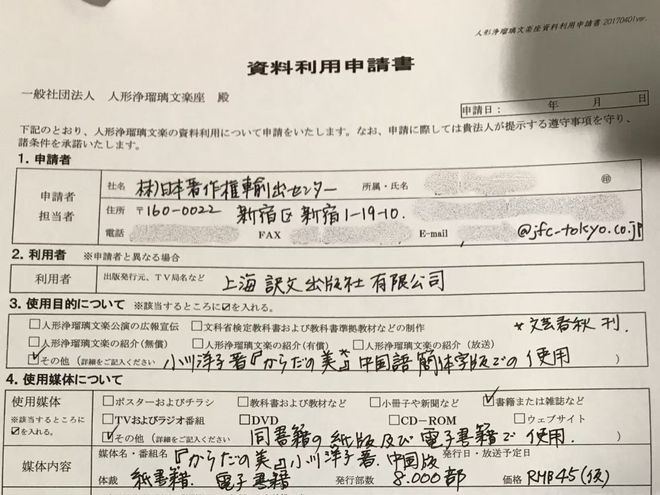 人形浄瑠璃文楽座資料利用申請書 20170401ver.
資料利用申請書
一般社団法人 人形浄瑠璃文楽座 殿
申請日： 年 月 日
下記のとおり、人形浄瑠璃文楽の資料利用について申請をいたします。なお、申請に際しては貴法人が提示する遵守事項を守り、
諸条件を承諾いたします。
1. 申請者
申請者 担当者
社名 ㈱日本著作権輸出センター 所属・氏名 ㊞
住所 〒160-0022 新宿区新宿1-19-10.
電話 FAX E-mail @jfc-tokyo.co.jp
2. 利用者 ※申請者と異なる場合
利用者 出版発行元、TV局名など 上海訳文出版社有限公司
3. 使用目的について ※該当するところに☑を入れる。
□人形浄瑠璃文楽公演の広報宣伝 □文科省検定教科書および教科書準拠教材などの制作 *文芸春秋刊.
□人形浄瑠璃文楽の紹介（無償） □人形浄瑠璃文楽の紹介（有償） □人形浄瑠璃文楽の紹介（放送）
☑その他（詳細をご記入ください 小川洋子著『からだの美』中国語簡体字版での使用 ）
4. 使用媒体について
使用媒体
※該当するところに
☑を入れる。
□ポスターおよびチラシ □教科書および教材など □小冊子や新聞など ☑書籍または雑誌など
□TVおよびラジオ番組 □DVD □CD－ROM □ウェブサイト
☑その他（詳細をご記入ください 同書籍の紙版及び電子書籍で使用. ）
媒体内容
媒体名・番組名 『からだの美』小川洋子著. 中国版 発行日・放送予定日
体裁 紙書籍. 電子書籍 発行部数 8.000部 価格 RMB45(仮)